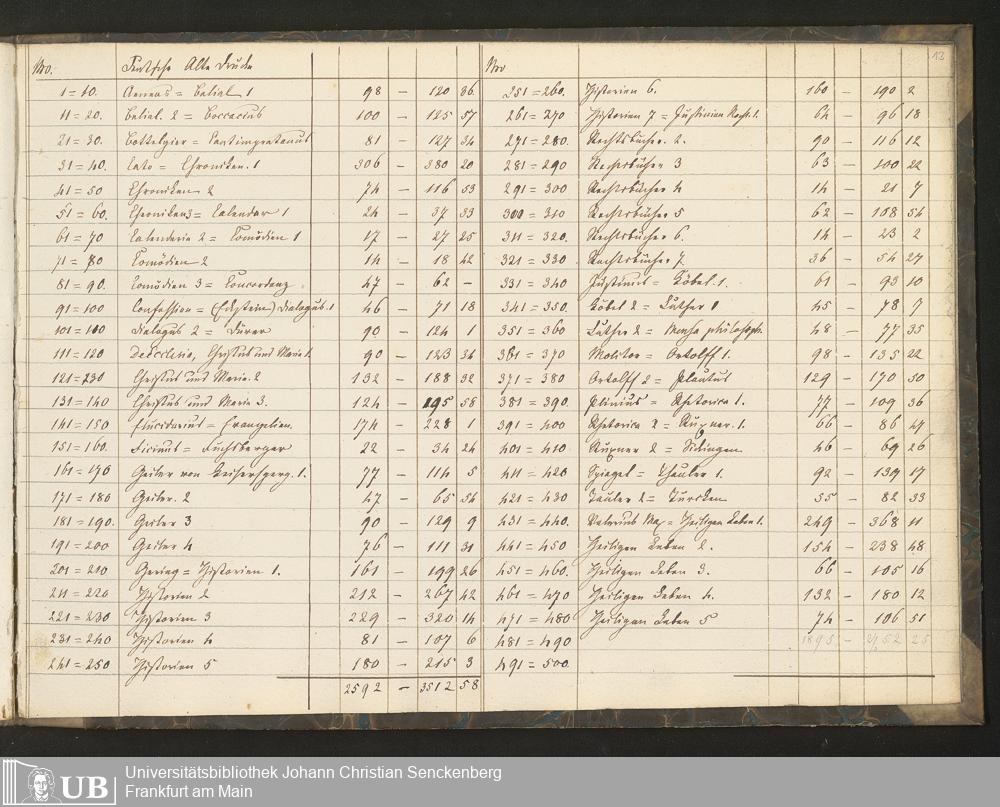 13
No. Deutsche Alte Drucke
1 = 10. Aeneas = Belial 1 98 – 120 36
11 = 20. Belial. 2 = Boccacius 100 – 125 57
21 = 30. 81 – 127 34
31 = 40. Cato = Chroniken. 1 306 – 380 20
41 = 50 Chroniken 2 74 – 116 53
51 = 60. Chroniken 3 = Calendar 1 24 – 37 33
61 = 70 Calendaria 2 = Comödien 1 17 – 27 25
71 = 80 Comödien 2 14 – 18 42
81 = 90. Comödien 3 = Concordanz 47 – 62 –
91 = 100 Confession = (Eckstein) Dialogus. 1 46 – 71 18
101 = 110 Dialogus 2 = Dürer 90 – 124 1
111 = 120 Christus und Maria 1. 90 – 123 34
121 = 130 Christus und Maria. 2 132 – 188 32
131 = 140 Christus und Maria 3. 124 – 195 58
141 = 150 Elucidarius = Evangelien. 174 – 228 1
151 = 160. Ficinus = Fuchsberger 22 – 34 24
161 = 170 Geiler von Keisersperg. 1. 77 – 114 5
171 = 180 Geiler. 2 47 – 65 54
181 = 190. Geiler 3 90 – 129 9
191 = 200 Geiler 4 76 – 111 31
201 = 210 Gering = Historien 1. 161 – 199 26
211 = 220 Historien 2 212 – 267 42
221 = 230 Historien 3 229 – 320 14
231 = 240 Historien 4 81 – 107 6
241 = 250 Historien 5 180 – 215 3
2592 – 3512 58
No
251 = 260. Historien 6. 160 – 190 2
261 = 270 Historien 7 = Justinian Recht. 1. 64 – 96 18
271 = 280. Rechtsbücher. 2. 90 – 116 12
281 = 290 Rechtsbücher 3 63 – 100 22
291 = 300 Rechtsbücher 4 14 – 21 7
300 = 310 Rechtsbücher 5 62 – 108 54
311 = 320. Rechtsbücher 6. 14 – 23 2
321 = 330 Rechtsbücher 7 36 – 54 27
331 = 340 Justinus = Köbel. 1. 61 – 93 10
341 = 350. Köbel 2 = Luther 1 45 – 78 7
351 = 360 Luther 2 = Mensa philosoph. 48 – 77 35
361 = 370 Molitor = Ortolff 1. 98 – 135 22
371 = 380 Ortolff 2 = Plautus 129 – 170 50
381 = 390. Plinius = Rhetorica 1. 77 – 109 36
391 = 400 Rhetorica 2 = 1. 66 – 86 47
401 = 410 2 = 46 – 69 26
411 = 420 Spiegel = Thauler 1. 92 – 139 17
421 = 430 Tauler 2 = Turcken 55 – 82 33
431 = 440. Valerius Max = Heiligen Leben 1. 249 – 368 11
441 = 450 Heiligen Leben 2. 154 – 238 48
451 = 460. Heiligen Leben 3. 66 – 105 16
461 = 470 Heiligen Leben 4. 132 – 180 12
471 = 480 Heiligen Leben 5 74 – 106 51
481 = 490 1895 – 25
491 = 500.
UB Universitätsbibliothek Johann Christian Senckenberg
Frankfurt am Main